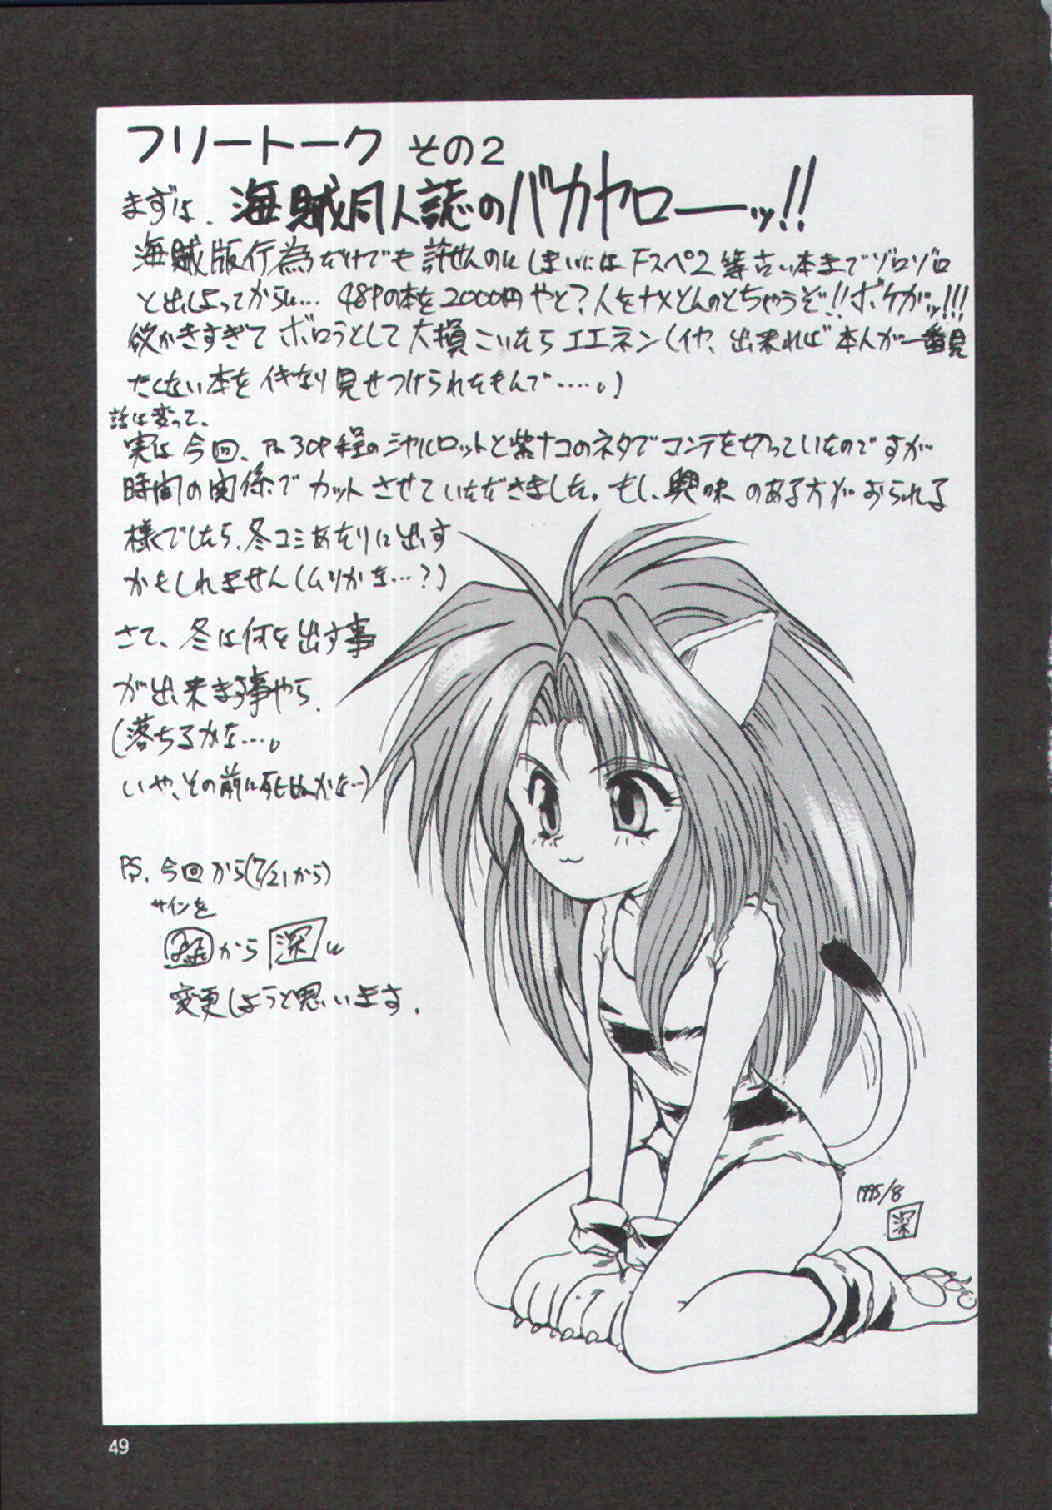 フリートーク その2
まずは、海賊同人誌のバカヤローッ!!
海賊版行為だけでも許せんのにしまいにはFスペ2等古い本までゾロゾロ
と出しよってからに… 48Pの本を2000円やと?人をナメとんのとちゃうぞ!!ボケがッ!!!
欲かきすぎてボロうとして大損こいたらエエネン(イヤ、出来れば本人が一番見
たくない本をイキなり見せつけられたもんで……。)
話は変って、
実は今回、30P程のシャルロットと紫ナコのネタでコンテを切っていたのですが
時間の関係でカットさせていただきました。もし、興味のある方がおられる
様でしたら、冬コミあたりに出す
かもしれません(ムリかな…?)
さて、冬は何を出す事
が出来ますやら。
(落ちるかな…。
いや、その前に死ぬかな…)
PS.今回から(7/21から)
サインを
から 深 に
変更しようと思います。
1995/8
深
49